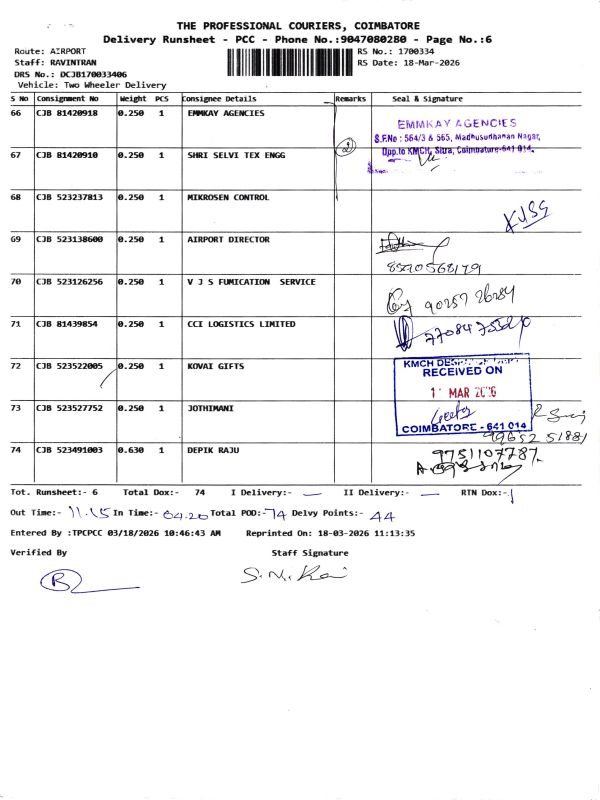 THE PROFESSIONAL COURIERS, COIMBATORE
Delivery Runsheet - PCC - Phone No.:9047080280 - Page No.:6
Route: AIRPORT RS No.: 1700334
Staff: RAVINTRAN RS Date: 18-Mar-2026
DRS No.: DCJB170033406
Vehicle: Two Wheeler Delivery
S No Consignment No Weight PCS Consignee Details Remarks Seal & Signature
66 CJB 81420918 0.250 1 EMMKAY AGENCIES
EMMKAY AGENCIES
S.F.No : 564/3 & 565, Madhusudhanan Nagar,
Opp.to KMCH, Sitra, Coimbatore-641 014.
2
67 CJB 81420910 0.250 1 SHRI SELVI TEX ENGG
68 CJB 523237813 0.250 1 MIKROSEN CONTROL
69 CJB 523138600 0.250 1 AIRPORT DIRECTOR
70 CJB 523126256 0.250 1 V J S FUMICATION SERVICE
71 CJB 81439854 0.250 1 CCI LOGISTICS LIMITED
72 CJB 523522005 0.250 1 KOVAI GIFTS
KMCH
RECEIVED ON
MAR
COIMBATORE - 641 014
73 CJB 523527752 0.250 1 JOTHIMANI
99652 51881
74 CJB 523491003 0.630 1 DEPIK RAJU
9751107787
Tot. Runsheet:- 6 Total Dox:- 74 I Delivery:- — II Delivery:- — RTN Dox:-
Out Time:- 11.15 In Time:- 04.20 Total POD:- 74 Delvy Points:- 44
Entered By :TPCPCC 03/18/2026 10:46:43 AM Reprinted On: 18-03-2026 11:13:35
Verified By Staff Signature